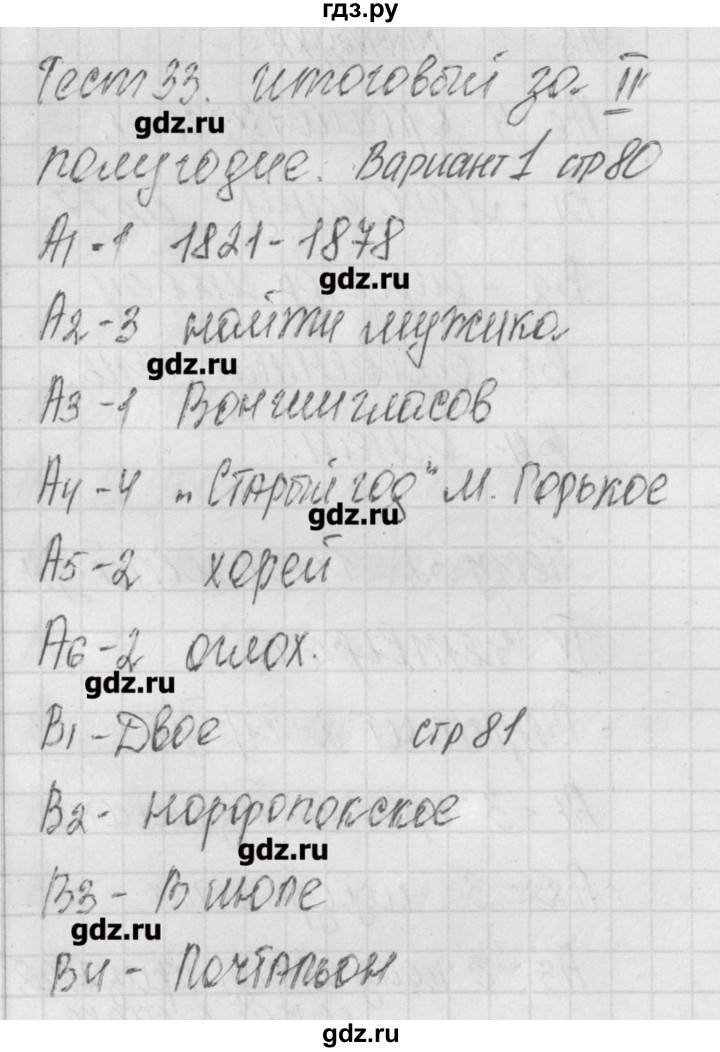 гдз.ру
Тест 33. итоговый за II
gdz.ru
полугодие. Вариант 1 стр 80
А1 - 1 1821 - 1878
gdz.ru
А2 - 3 найти мужика
gdz.ru
А3 - 1 Воншигласов
А4 - 4 „Старый год" М. Горькое
gdz.ru
А5 - 2 хорей
А6 - 2 оглох.
gdz.ru
В1 - Двое стр 81
В2 - Норфопокское
gdz.ru
В3 - В июле
gdz.ru
В4 - Почтальон
gdz.ru